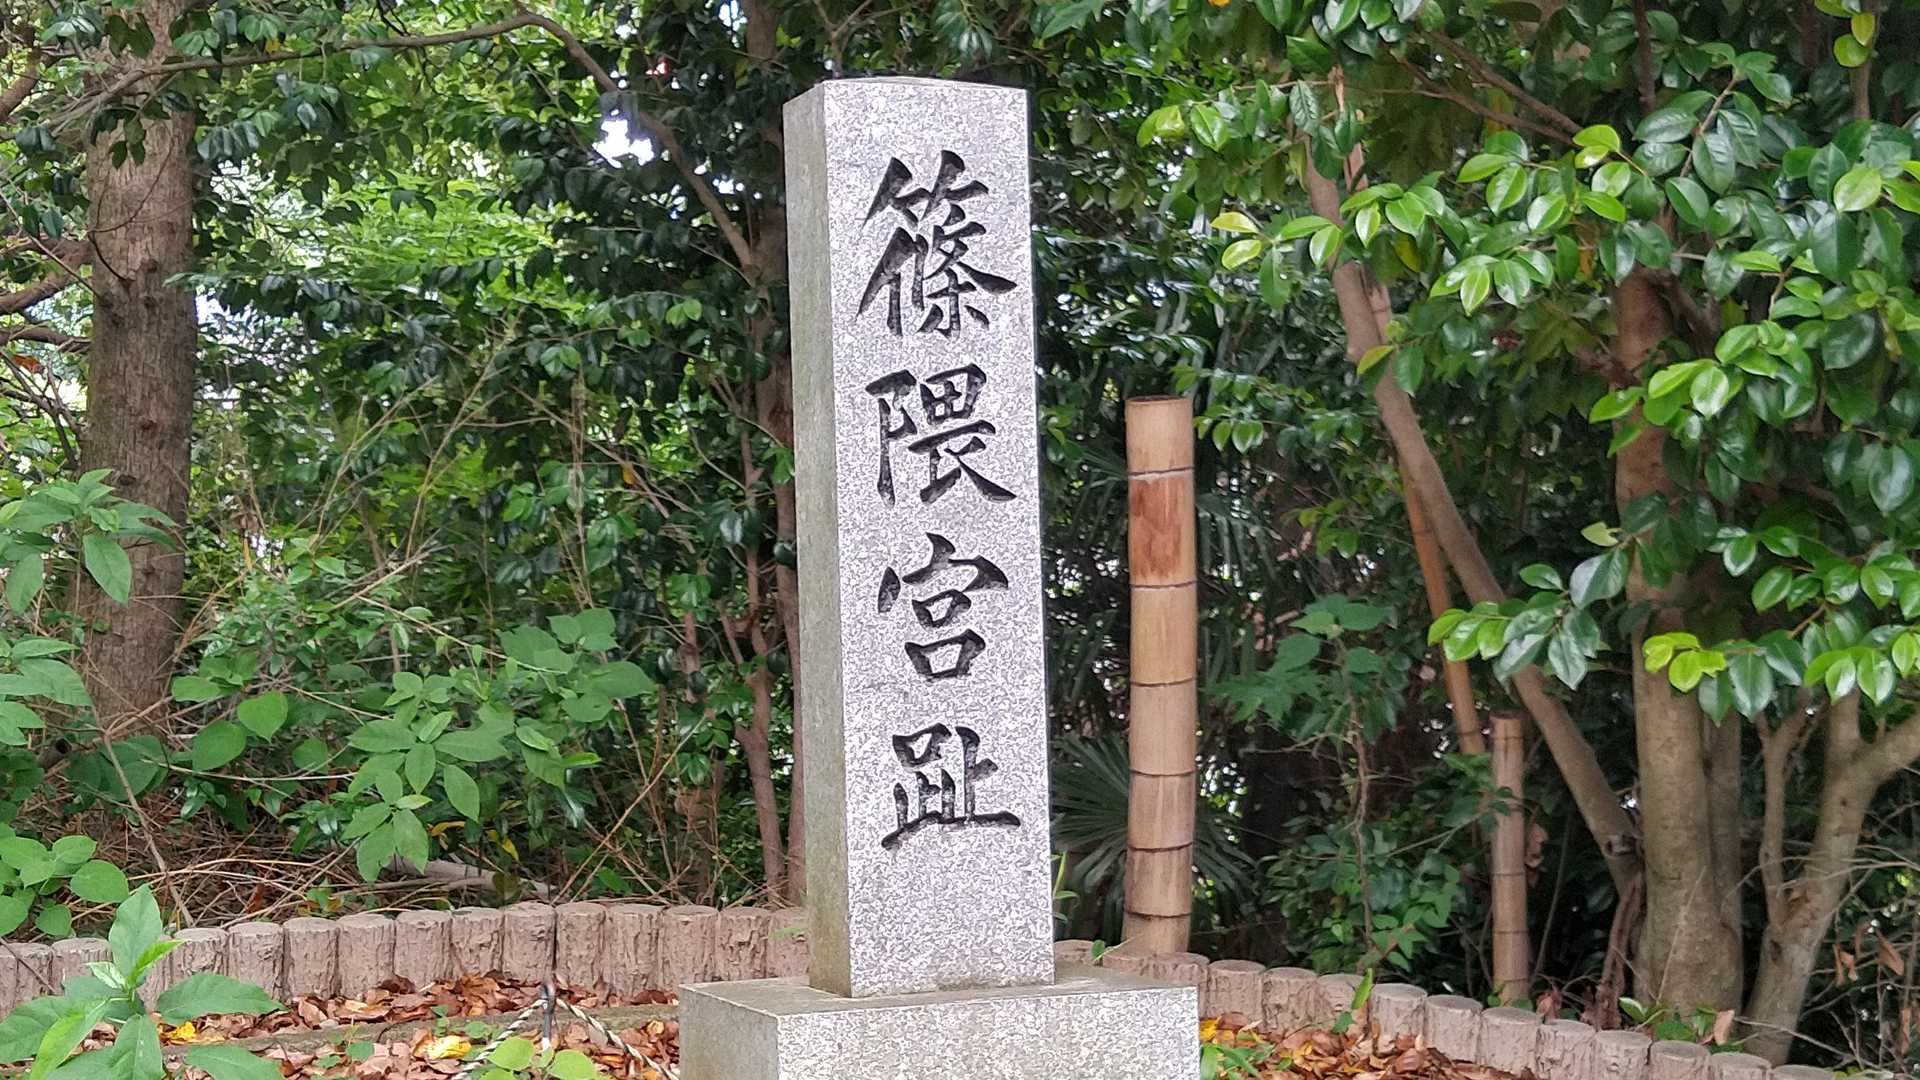 篠隈宮趾